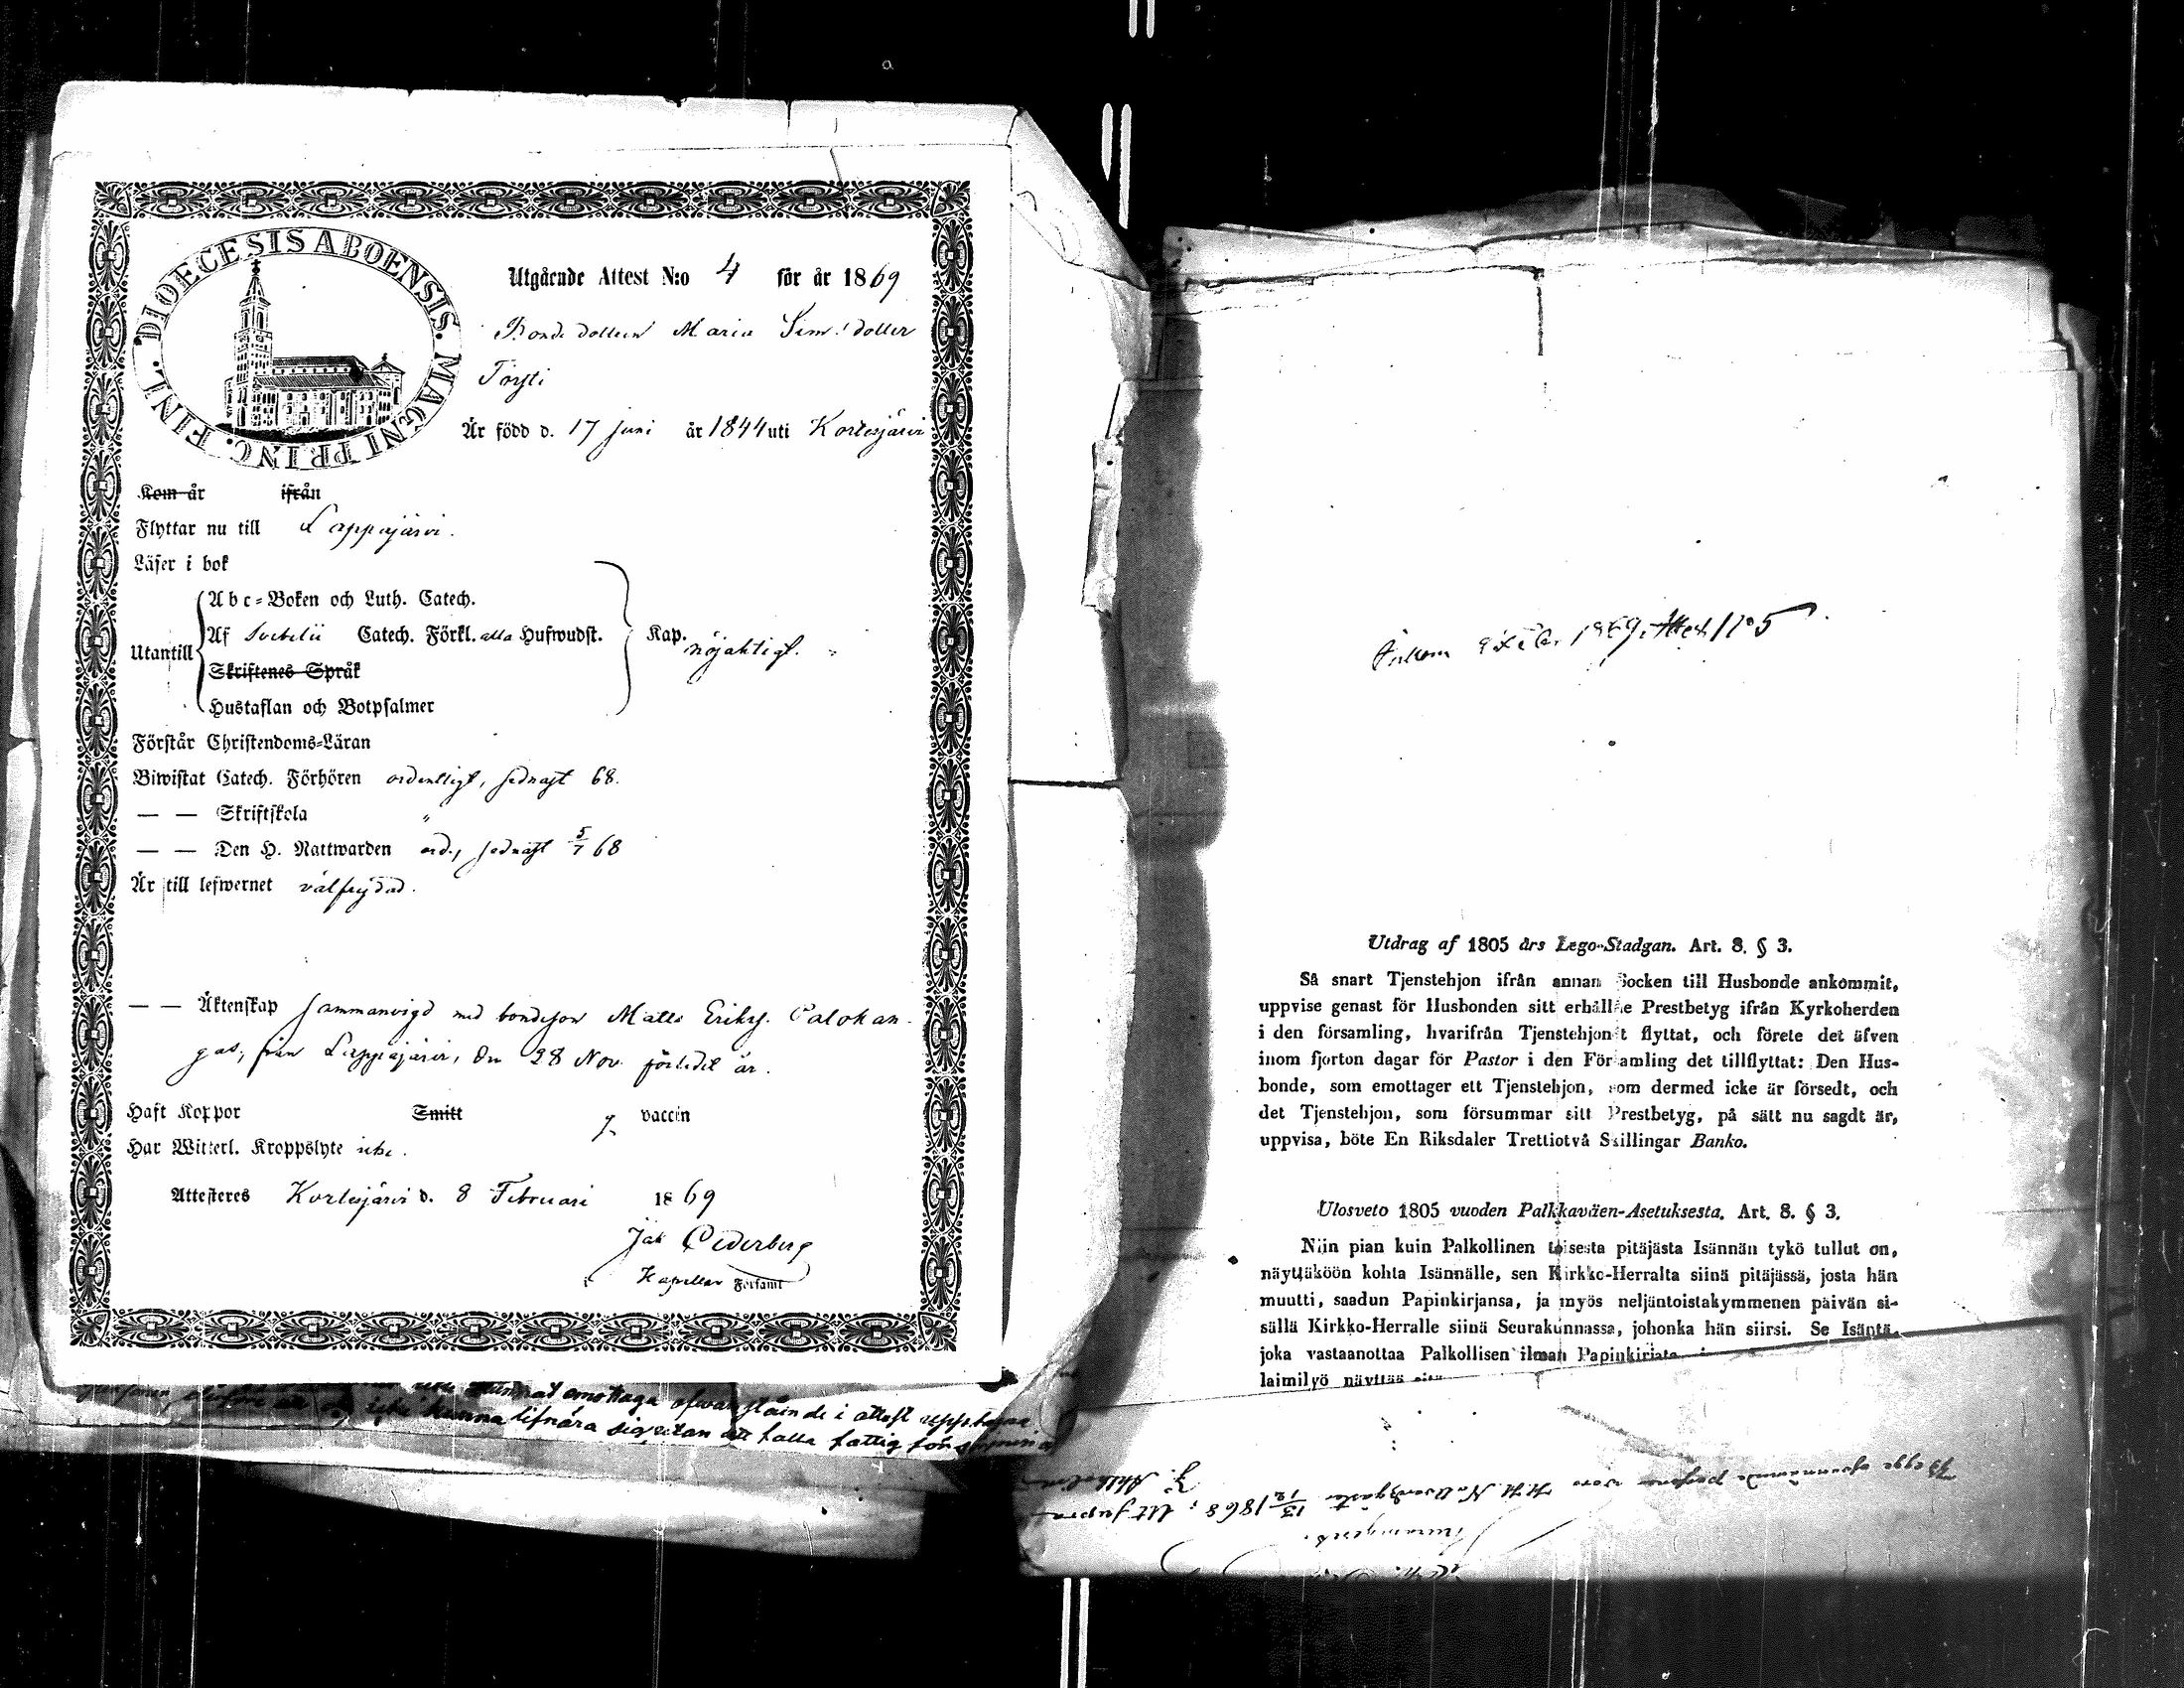 DIOECESIS ABOENSIS. MAGNI PRINC. FINL.
Utgående Attest N:o 4 för år 1869
Bonde dottern Maria Sim: dotter
Törsti
Är född d. 17 Juni år 1844 uti Kortesjärvi
Kom år ifrån
Flyttar nu till Lappajärvi.
Läser i bok
Utantill
Abc-Boken och Luth. Catech.
Af Svebelii Catech. Förkl. alla Hufwudst.
Skriftenes Språk
Hustaflan och Botpsalmer
Kap. nöjaktigt.
Förstår Christendoms-Läran
Biwistat Catech. Förhören ordentligt, sednast 68.
— — Skriftskola "
— — Den H. Nattwarden ord., sednast 5/7 68
Är till lefwernet välfrejdad.
— — Äktenskap sammanvigd med bondeson Matts Eriks. Calokan-
gas, från Lappajärvi, den 28 Nov. förledet år.
Haft Koppor Smitt vaccin
Har Witterl. Kroppslyte icke.
Attesteras Kortesjärvi d. 8 Februari 1869
Jak Cederberg
Kapellan Församl
emottaga ofvanstående i attest
icke kunna lifnära sig utan att falla fattig församling
1869. Attest N:o 5
Utdrag af 1805 års Lego-Stadgan. Art. 8. § 3.
Så snart Tjenstehjon ifrån annan Socken till Husbonde ankommit,
uppvise genast för Husbonden sitt erhållne Prestbetyg ifrån Kyrkoherden
i den församling, hvarifrån Tjenstehjonet flyttat, och förete det äfven
inom fjorton dagar för Pastor i den Församling det tillflyttat: Den Hus-
bonde, som emottager ett Tjenstehjon, som dermed icke är försedt, och
det Tjenstehjon, som försummar sitt Prestbetyg, på sätt nu sagdt är,
uppvisa, böte En Riksdaler Trettiotvå Skillingar Banko.
Ulosveto 1805 vuoden Palkkaväen-Asetuksesta. Art. 8. § 3.
Niin pian kuin Palkollinen toisesta pitäjästa Isännän tykö tullut on,
näyttäköön kohta Isännälle, sen Kirkko-Herralta siinä pitäjässä, josta hän
muutti, saadun Papinkirjansa, ja myös neljäntoistakymmenen päivän si-
sällä Kirkko-Herralle siinä Seurakunnassa, johonka hän siirsi. Se Isäntä,
joka vastaanottaa Palkollisen ilman Papinkirjata
laimilyö näyttää
Begge ofvannämnde personer voro H. H. Nattvardsgäster 13/12 1868; Ut supra
J. Ahlholm